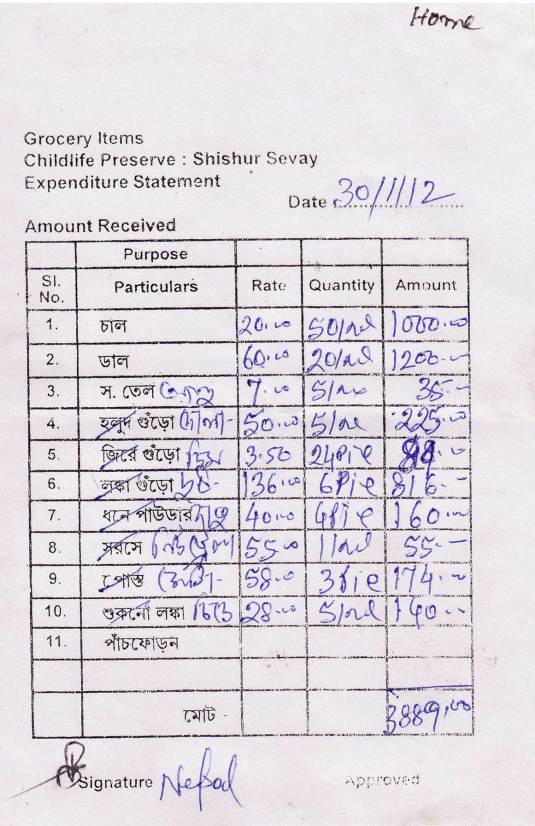 Home
Grocery Items
Childlife Preserve : Shishur Sevay
Expenditure Statement
Date : 30/11/12
Amount Received
Purpose
Sl. No. Particulars Rate Quantity Amount
1. চাল 20.00 50/kd 1000.00
2. ডাল 60.00 20/kd 1200.–
3. স. তেল আলু 7.00 5/ 35.–
4. হলুদ গুঁড়ো 50.00 5/ 225.00
5. জিরে গুঁড়ো ডিম 3.50 24Pie
6. লঙ্কা গুঁড়ো 136.00 6Pie 816.–
7. ধনে পাউডার 40.00 4Pie 160.00
8. সরসে 55.00 1/ 55.–
9. পোস্ত 58.00 3Pie 174.–
10. শুকনো লঙ্কা চিড়ে 28.00 5/ 140.–
11. পাঁচফোড়ন
মোট - 3889.00
Signature
Approved